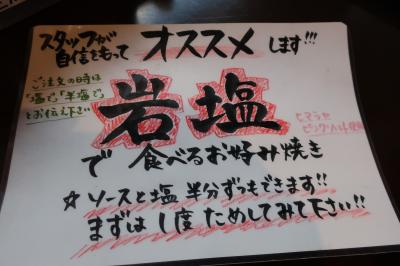 スタッフが
自信をもって オススメ します!!!
ご注文の時は
"塩で""半塩で"
とお伝え下さい
岩塩
ヒマラヤ
ピンクソルト使用
で 食べるお好み焼き
☆ ソースと塩 半分ずつもできます!!
まずは 1度 ためしてみて下さい!!